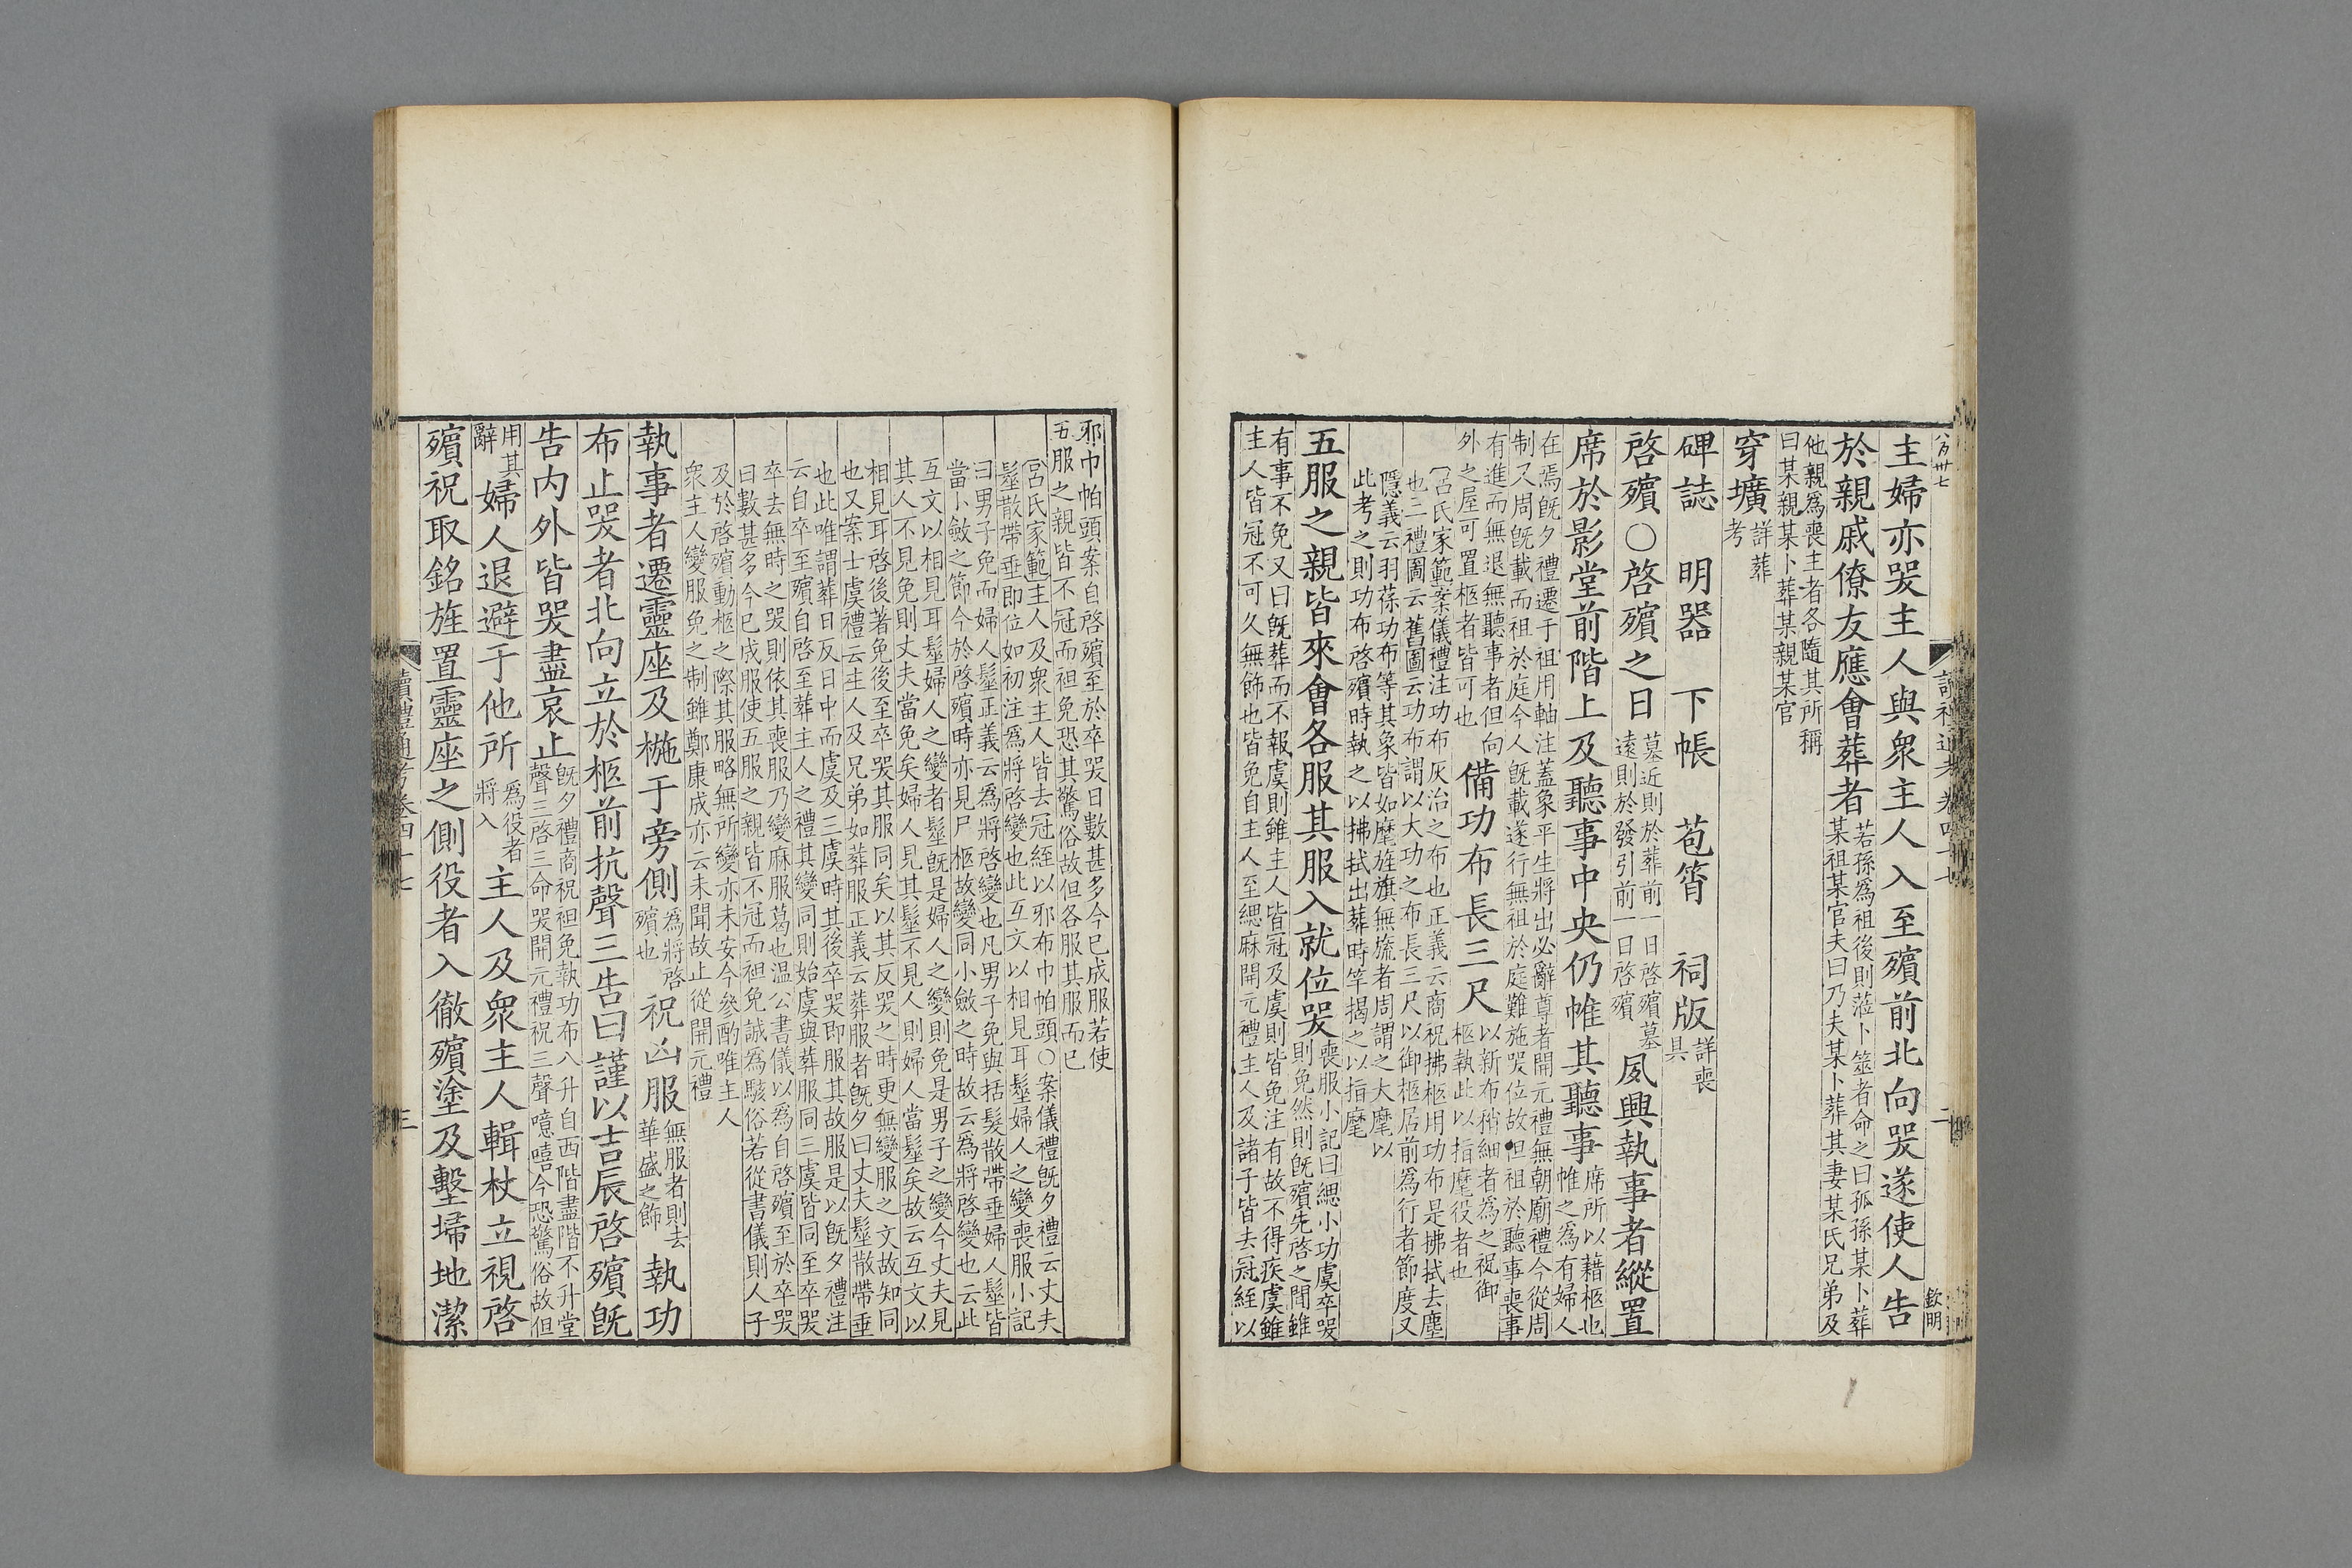 八万卅七
讀禮通考卷四十七 二 欽明
主婦亦哭主人與眾主人入至殯前北向哭遂使人告
於親戚僚友應會葬者若孫爲祖後則蒞卜筮者命之曰孤孫某卜葬
某祖某官夫曰乃夫某卜葬其妻某氏兄弟及
他親爲喪主者各隨其所稱
曰某親某卜葬某親某官
穿壙詳葬
考
碑誌 明器 下帳 苞筲 祠版詳喪
具
啓殯○啓殯之日墓近則於葬前一日啓殯墓
遠則於發引前一日啓殯夙興執事者縱置
席於影堂前階上及聽事中央仍帷其聽事席所以藉柩也
帷之爲有婦人
在焉既夕禮遷于祖用軸注蓋象平生將出必辭尊者開元禮無朝廟禮今從周
制又周既載而祖於庭今人既載遂行無祖於庭難施哭位故但祖於聽事喪事
有進而無退無聽事者但向
外之屋可置柩者皆可也備功布長三尺以新布稍細者爲之祝御
柩執此以指麾役者也
呂氏家範案儀禮注功布灰治之布也正義云商祝拂柩用功布是拂拭去塵
也二禮圖云舊圖云功布謂以大功之布長三尺以御柩居前爲行者節度又
隱義云羽葆功布等其象皆如麾旌旗無旒者周謂之大麾以
此考之則功布啓殯時執之以拂拭出葬時竿揭之以指麾
五服之親皆來會各服其服入就位哭喪服小記曰緦小功虞卒哭
則免然則既殯先啓之間雖
有事不免又曰既葬而不報虞則雖主人皆冠及虞則皆免注有故不得疾虞雖
主人皆冠不可久無飾也皆免自主人至緦麻開元禮主人及諸子皆去冠絰以
邪巾帕頭案自啓殯至於卒哭日數甚多今已成服若使
五服之親皆不冠而袒免恐其驚俗故但各服其服而已
呂氏家範主人及眾主人皆去冠絰以邪布巾帕頭○案儀禮既夕禮云丈夫
髽散帶垂即位如初注爲將啓變也此互文以相見耳髽婦人之變喪服小記
曰男子免而婦人髽正義云爲將啓變也凡男子免與括髮散帶垂婦人髽皆
當小斂之節今於啓殯時亦見尸柩故變同小斂之時故云爲將啓變也云此
互文以相見耳髽婦人之變者髽既是婦人之變則免是男子之變今丈夫見
其人不見免則丈夫當免矣婦人見其髽不見人則婦人當髽矣故云互文以
相見耳啓後著免後至卒哭其服同矣以其反哭之時更無變服之文故知同
也又案士虞禮云主人及兄弟如葬服正義云葬服者既夕曰丈夫髽散帶垂
也此唯謂葬日反日中而虞及三虞時其後卒哭即服其故服是以既夕禮注
云自卒至殯自啓至葬主人之禮其變同則始虞與葬服同三虞皆同至卒哭
卒去無時之哭則依其喪服乃變麻服葛也温公書儀以爲自啓殯至於卒哭
日數甚多今已成服使五服之親皆不冠而袒免誠爲駭俗若從書儀則人子
及於啓殯動柩之際其服略無所變亦未安今參酌唯主人
眾主人變服免之制雖鄭康成亦云未聞故止從開元禮
執事者遷靈座及椸于旁側爲將啓
殯也祝凶服無服者則去
華盛之飾執功
布止哭者北向立於柩前抗聲三告曰謹以吉辰啓殯既
告内外皆哭盡哀止既夕禮商祝袒免執功布入升自西階盡階不升堂
聲三啓三命哭開元禮祝三聲噫嘻今恐驚俗故但
用其
辭婦人退避于他所爲役者
將入主人及眾主人輯杖立視啓
殯祝取銘旌置靈座之側役者入徹殯塗及墼埽地潔
讀禮通考卷四十七 三